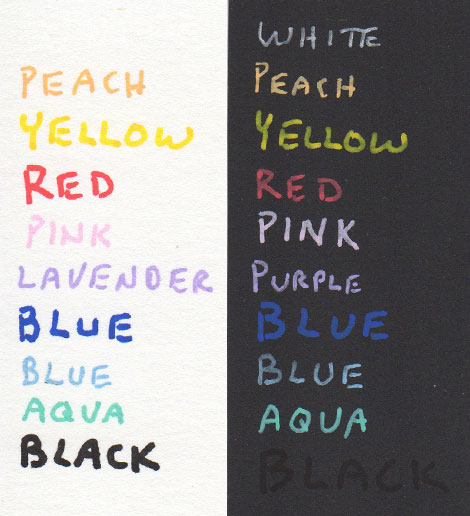 PEACH
YELLOW
RED
PINK
LAVENDER
BLUE
BLUE
AQUA
BLACK
WHITE
PEACH
YELLOW
RED
PINK
PURPLE
BLUE
BLUE
AQUA
BLACK